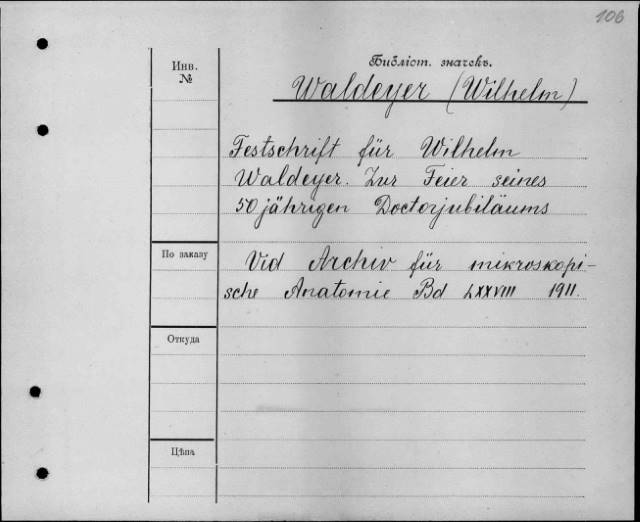 106
Инв.
№
Библіот. значекъ.
Waldeyer (Wilhelm)
Festschrift für Wilhelm
Waldeyer. Zur Feier seines
50 jährigen Doctorjubiläums
По заказу
Vid Archiv für mikroskopi-
sche Anatomie Bd LXXVIII 1911.
Откуда
Цѣна